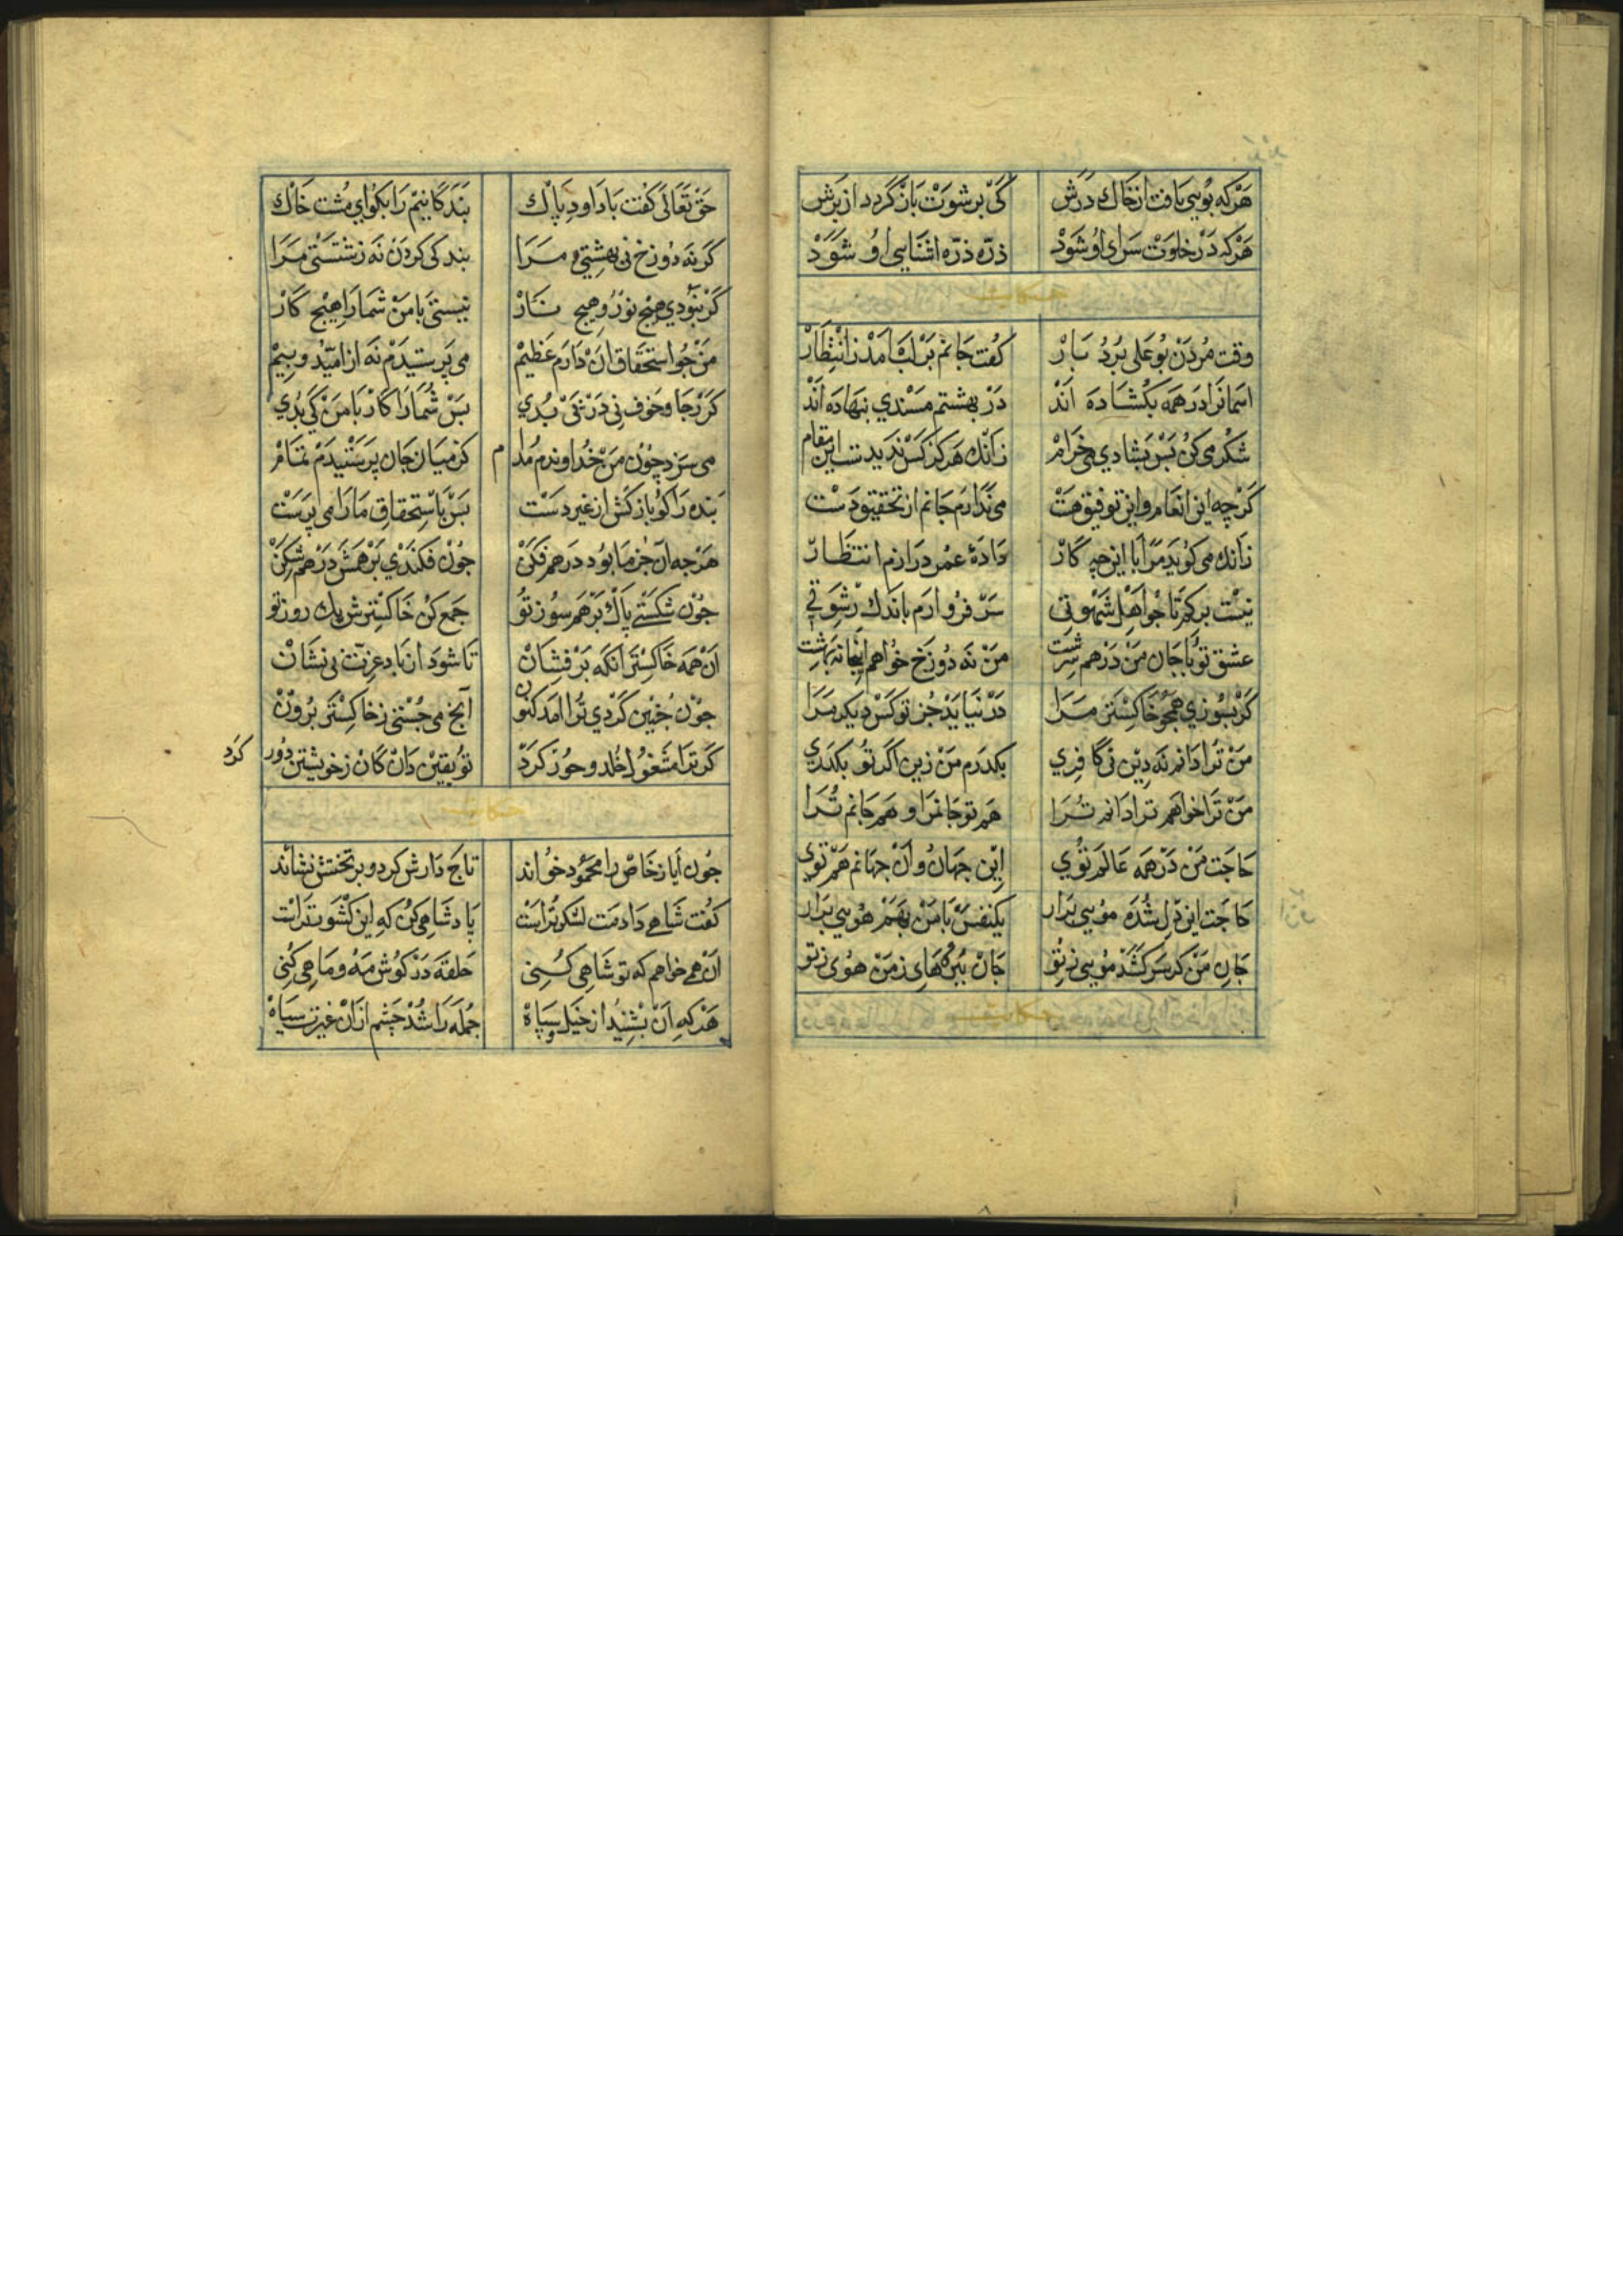 هرکه بویی یافت از خاک درش کی برشوت باز گردد از برش
هرکه در خلوت سرای او شود ذره ذره اشنایی او شود
حکایت
وقت مردن بوعلی رودبار گفت جانم بر لب امد ز انتظار
اسمانرا در همه بکشاده اند در بهشتم مسندی بنهاده اند
شکر می کن بس بشادی می خرام زانک هرکز کس ندیدست این مقام
کرچه این انعام و این توفیق هست می ندارم جانم از تحقیق دست
زانک می کوید مرا با این چه کار داده عمر درازم انتظار
نیست برکم تا جو اهل شهوتی سر فرو ارم باندک رشوتی
عشق تو با جان من در هم سرشت من نه دوزخ خواهم اینجا نه بهشت
کر بسوزی همچو خاکستر مرا در نیابد جز تو کس دیکر مرا
من ترا دانم نه دین نی کافری بکذرم من زین اکر تو بکذری
من ترا خواهم ترا دانم ترا هم تو جانمرا و هم جانم ترا
حاجت من در همه عالم توی این جهان و ان جهانم هم توی
حاجت این دل شده مویی برار یکنفس با من بهم هویی برار
جان من کر سر کشد مویی ز تو جان ببر های ز من هوی ز تو
حکایت
حق تعالی کفت با داود پاک بندکانیم را بکو ای مشت خاک
کر نه دوزخ نی بهشتی مرا بندکی کردن نه زشتستی مرا
کر نبودی هیج نور و هیج نار نیستی با من شمارا هیج کار
من جو استحقاق ان دارم عظیم می پرستیدم نه از امید و بیم
کر رجا و خوف نی در پی بدی بس شمارا کار با من کی بدی
می سزد چون من خداوندم مدام کز میان جان پرستیدم تمام
بنده را کو باز کش از غیر دست بس باستحقاق مارا می پرست
هرجه ان جز ما بود در هم فکن جون فکندی بر همش در هم شکن
جون شکستی پاک بر هم سوز تو جمع کن خاکسترش یک روز تو
ان همه خاکستر انکه بر فشان تا شود از باد عزت بی نشان
جون جنین کردی ترا امد کنون انج می جستی ز خاکستر برون
کر ترا مشغول خلد و حور کرد تو یقین دان کان ز خویشتن دور کرد
حکایت
جون ایاز خاص را محمود خواند تاج دارش کرد و بر تختش نشاند
کفت شاهی دادمت لشکر تراست پادشاهی کن که این کشور تراست
ان همی خواهم که تو شاهی کنی حلقه در کوش مه و ماهی کنی
هرکه ان بشنید از خیل و سپاه جمله را شد چشم از ان غیرت سیاه